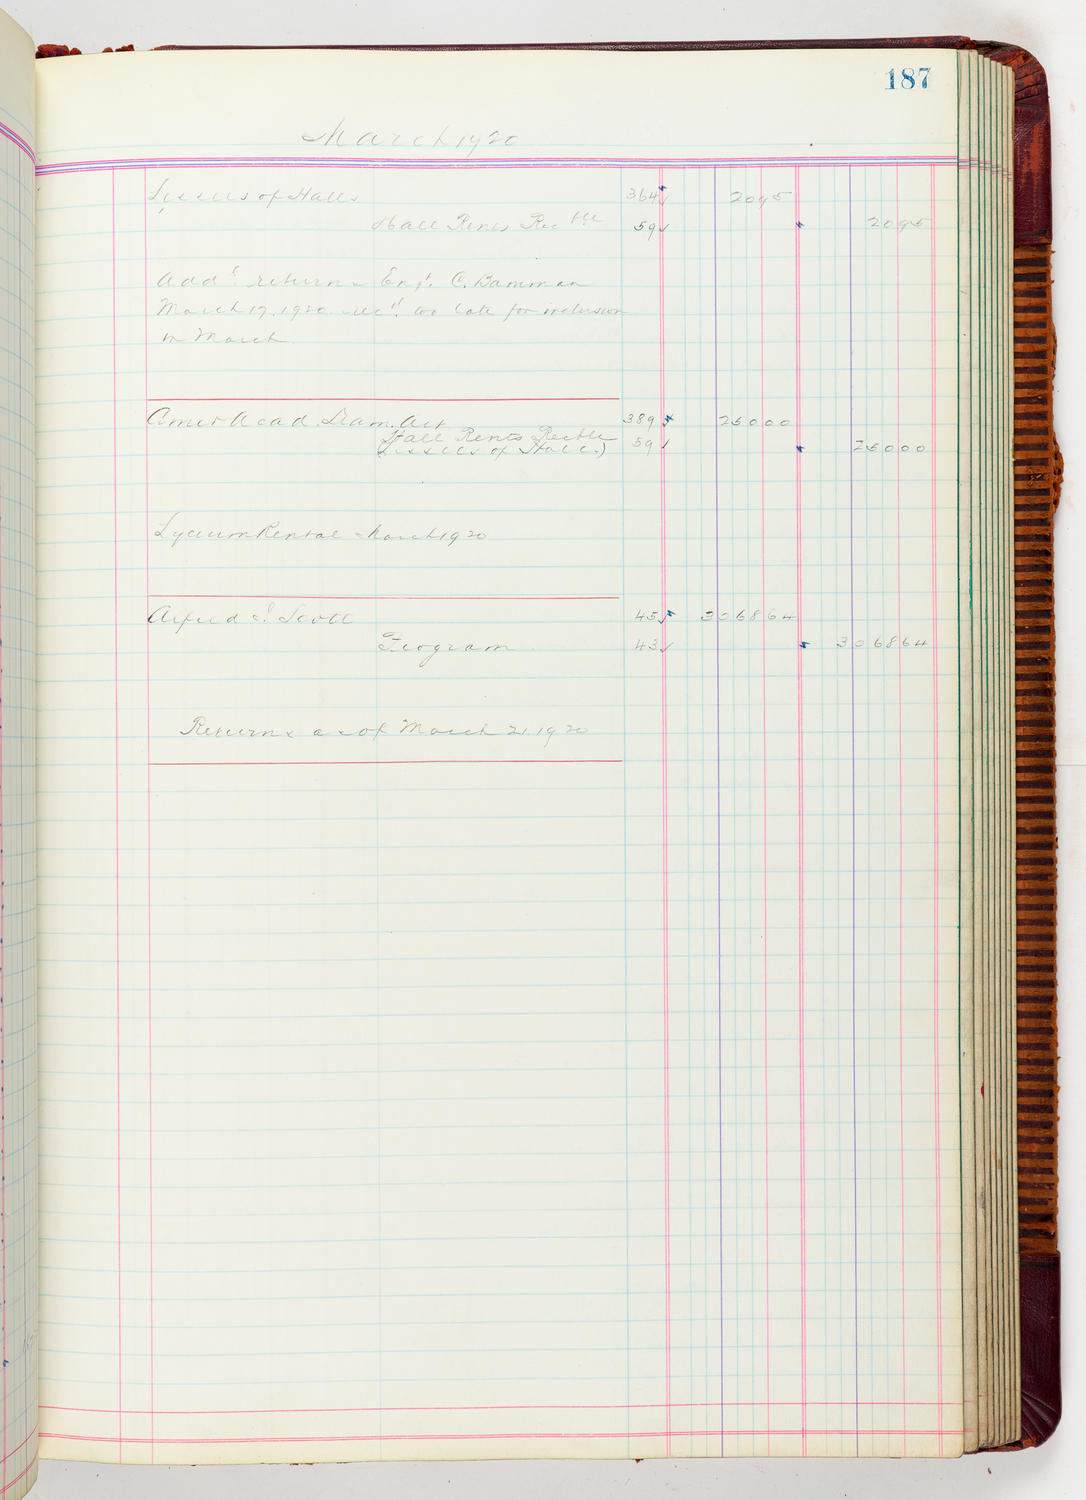 187
March 1920
Lessees of Halls 364 ✓ 2095
Hall Rents Rec ble 59 ✓ 2095
Add'l returns Eng't C. Bamman
March 17, 1920 rec'd too late for inclusion
in March
Amer Acad. Dram. Art 389 25000
Hall Rents Recble 59 ✓ 25000
(Lessees of Halls)
Lyceum Rental March 1920
Alfred Scott 45 ✓ 306864
Program 43 ✓ 306864
Returns as of March 21, 1920